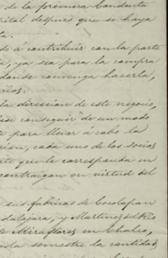 de la primera Conducta
rital despues que se haya
to.
do á contribuir con la parte
, ya sea para la compra
donde convenga hacerla,
ños.
la direccion de este negocio,
ida conseguir de un modo
para llevar á cabo la
cion, cada uno de los socios
te que le corresponda en
contraigan en virtud del
sus fabricas de Cocolapan
dalajara, y Martinez del Rio
Miraflores en Chalco,
cada semestre la cantidad